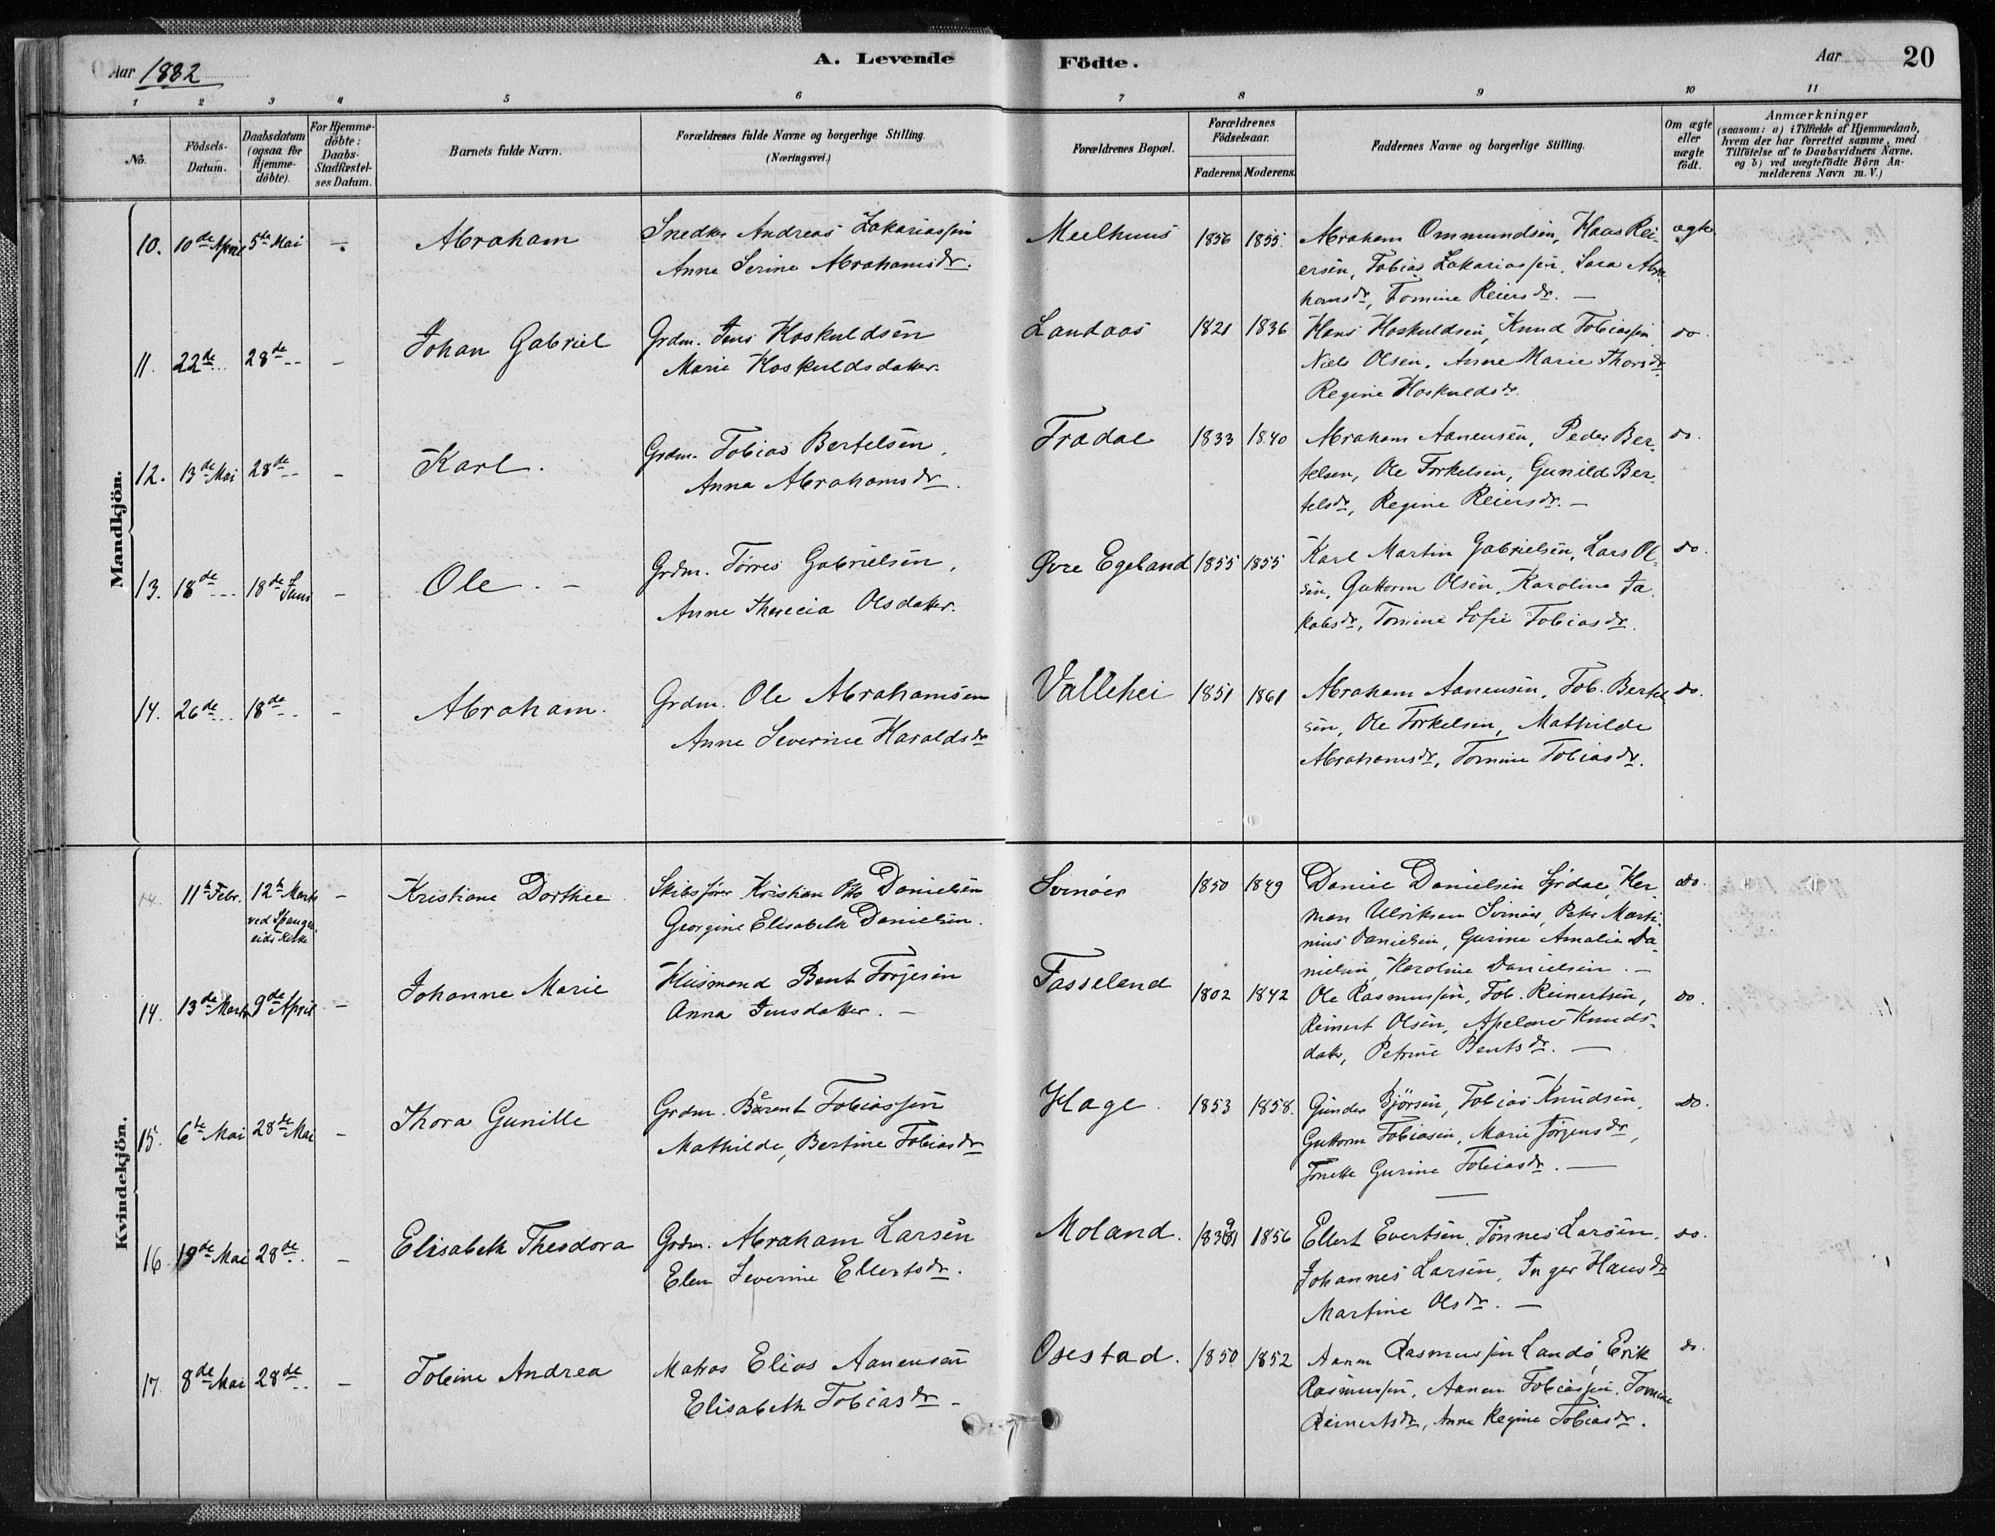 Aar 1882
A. Levende Födte.
Aar
20
1 2 3 4 5 6 7 8 9 10 11
No.
Födsels-Datum.
Daabsdatum (ogsaa for Hjemme-döbte).
For Hjemme-döbte: Daabs-Stadfæstel-ses Datum.
Barnets fulde Navn.
Forældrenes fulde Navne og borgerlige Stilling.
(Næringsvei.)
Forældrenes Bopæl.
Forældrenes Födselsaar.
Faderens. Moderens.
Faddernes Navne og borgerlige Stilling.
Om ægte eller uægte födt.
Anmærkninger
(saasom: a) i Tilfælde af Hjemmedaab,
hvem der har forrettet samme, med
Tilföielse af to Daabsvidners Navne.
og b) ved uægtefödte Börn An-
melderens Navn m. V.)
Mandkjön.
10. 10de April 5te Mai – Abraham
Snedker Andreas Zakariassen
Anne Serine Abrahamsdr.
Meelhuus 1856 1855.
Abraham Ommundsen, Hans Rei-
ersen, Tobias Zakariassen, Sara Abra
hamsdr, Tomine Reiersdr. –
ægte
11. 22de 28de – Johan Gabriel
Grdm. Jens Hoskuldsen
Marie Hoskuldsdatter.
Landaas 1821 1836
Hans Hoskuldsen, Knud Tobiassen
Niels Olsen, Anne Marie Thorsdr
Regine Hoskuldsdr.
do.
12. 13de Mai 28de – Karl.
Grdm. Tobias Bertelsen,
Anna Abrahamsdr.
Fradal 1833 1840
Abraham Aanensen, Peder Ber-
telsen, Ole Torkelsen, Gunild Ber-
telsdr, Regine Reiersdr. –
do.
13. 18de 18de Juni – Ole. –
Grdm. Tørres Gabrielsen,
Anne Therecia Olsdatter.
Øvre Egeland 1855 1855
Karl Martin Gabrielsen, Lars Ol-
sen, Guttorm Olsen, Karoline Ja-
kobsdr, Tomine Sofie Tobiasdr.
do.
14. 26de 18de – Abraham.
Grdm. Ole Abrahamsen
Anne Severine Haraldsdr
Vallehei 1851 1861
Abraham Aanensen, Tob. Bertel
sen, Ole Torkelsen, Mathilde
Abrahamsdr, Tomine Tobiasdr.
do.
Kvindekjön.
14. 11te Febr. 12te Marts ved Spangereids Kirke – Kristiane Dorthee
Skibsfører Kristian Otto Danielsen
Georgine Elisabeth Danielsen.
Svinøer 1850 1849
Daniel Danielsen Herman Ulriksen Svinøer, Peter Marti
nius Danielsen, Gurine Amalie Da-
nielsen, Karoline Danielsen. –
do.
14. 13de Marts 9de April – Johanne Marie
Huusmand Bent Torjesen
Anna Jensdatter. –
Fasseland 1802 1842
Ole Rasmussen, Tob. Reinertsen,
Reinert Olsen, Apelone Knuds-
datr, Petrine Bentsdr. –
do.
15. 6te Mai 28de Mai – Thora Gunille
Grdm. Bärent Tobiassen
Mathilde, Bertine Tobiasdr
Hage. 1853 1858.
Gunder Bjørsen, Tobias Knudsen,
Guttorm Tobiasen, Marie Jørgensdr,
Tonette Gurine Tobiasdr. –
do.
16. 19de Mai 28de – Elisabeth Theodora
Grdm. Abraham Larsen
Elen Severine Ellertsdr.
Moland. 1856
Ellert Evertsen, Tönnes Larsen,
Johannes Larsen, Inger Hansdr
Martine Olsdr. –
do.
17. 8de Mai 28de – Tobine Andrea
Matros Elias Aanensen
Elisabeth Tobiasdr –
Osestad. 1850 1852
Aanen Rasmussen Landø, Erik
Rasmussen, Aanen Tobiassen, Tomine
Reinertsdr, Anne Regine Tobiasdr.
do.